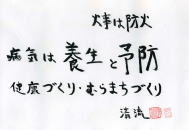 火事は防火
病気は養生と予防
健康づくり・むらまちづくり
清流